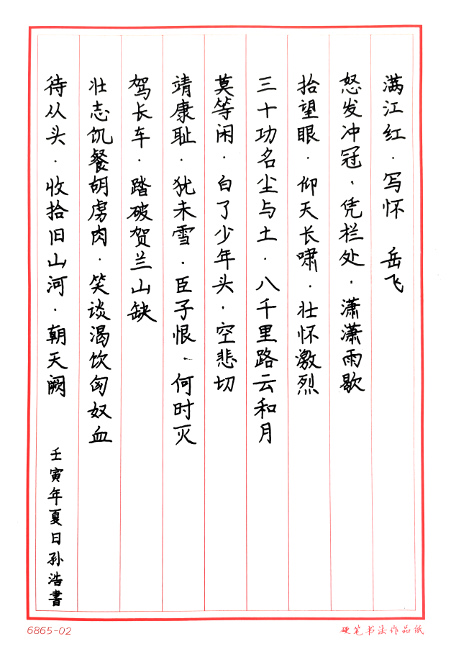 满江红·写怀 岳飞
怒发冲冠·凭栏处·潇潇雨歇
抬望眼·仰天长啸·壮怀激烈
三十功名尘与土·八千里路云和月
莫等闲·白了少年头·空悲切
靖康耻·犹未雪·臣子恨·何时灭
驾长车·踏破贺兰山缺
壮志饥餐胡虏肉·笑谈渴饮匈奴血
待从头·收拾旧山河·朝天阙
壬寅年夏日孙浩書
6865-02
硬笔书法作品纸